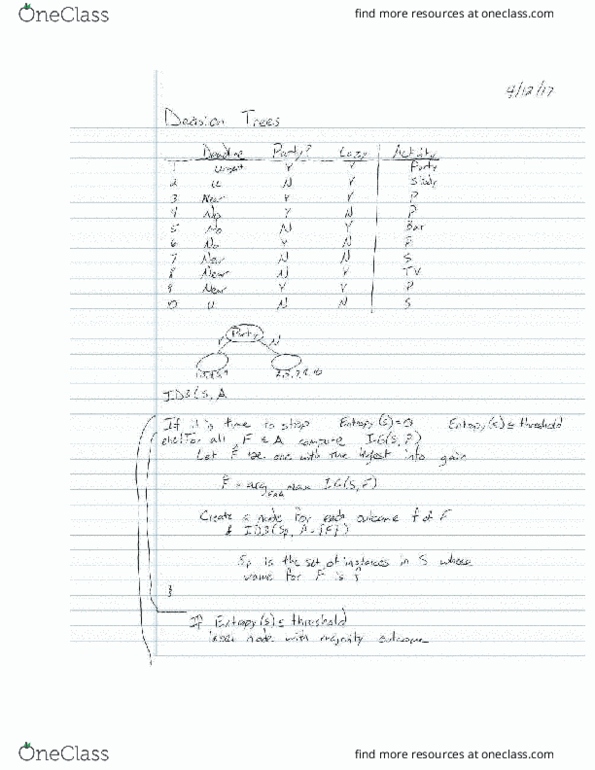 OneClass
find more resources at oneclass.com
4/12/17
Decision Trees
Deadline Party? Lazy Activity
1 Urgent Y Y Party
2 U N Y Study
3 Near Y Y P
4 No Y N P
5 No N Y Bar
6 No Y N P
7 Near N N S
8 Near N Y TV
9 Near Y Y P
10 U N N S
Party
Y N
ID3(S, A
If it is time to stop Entropy(S)=0 Entropy(S) ≤ threshold
else for all F ∈ A compute IG(S, F)
Let F̂ be one with the largest info gain
F̂ = arg max IG(S, F)
F∈A
Create a node for each outcome f of F̂
& ID3(Sf, A - {F̂})
Sf is the set of instances in S whose
value for F̂ is f
}
If Entropy(S) ≤ threshold
node with majority outcome
OneClass
find more resources at oneclass.com